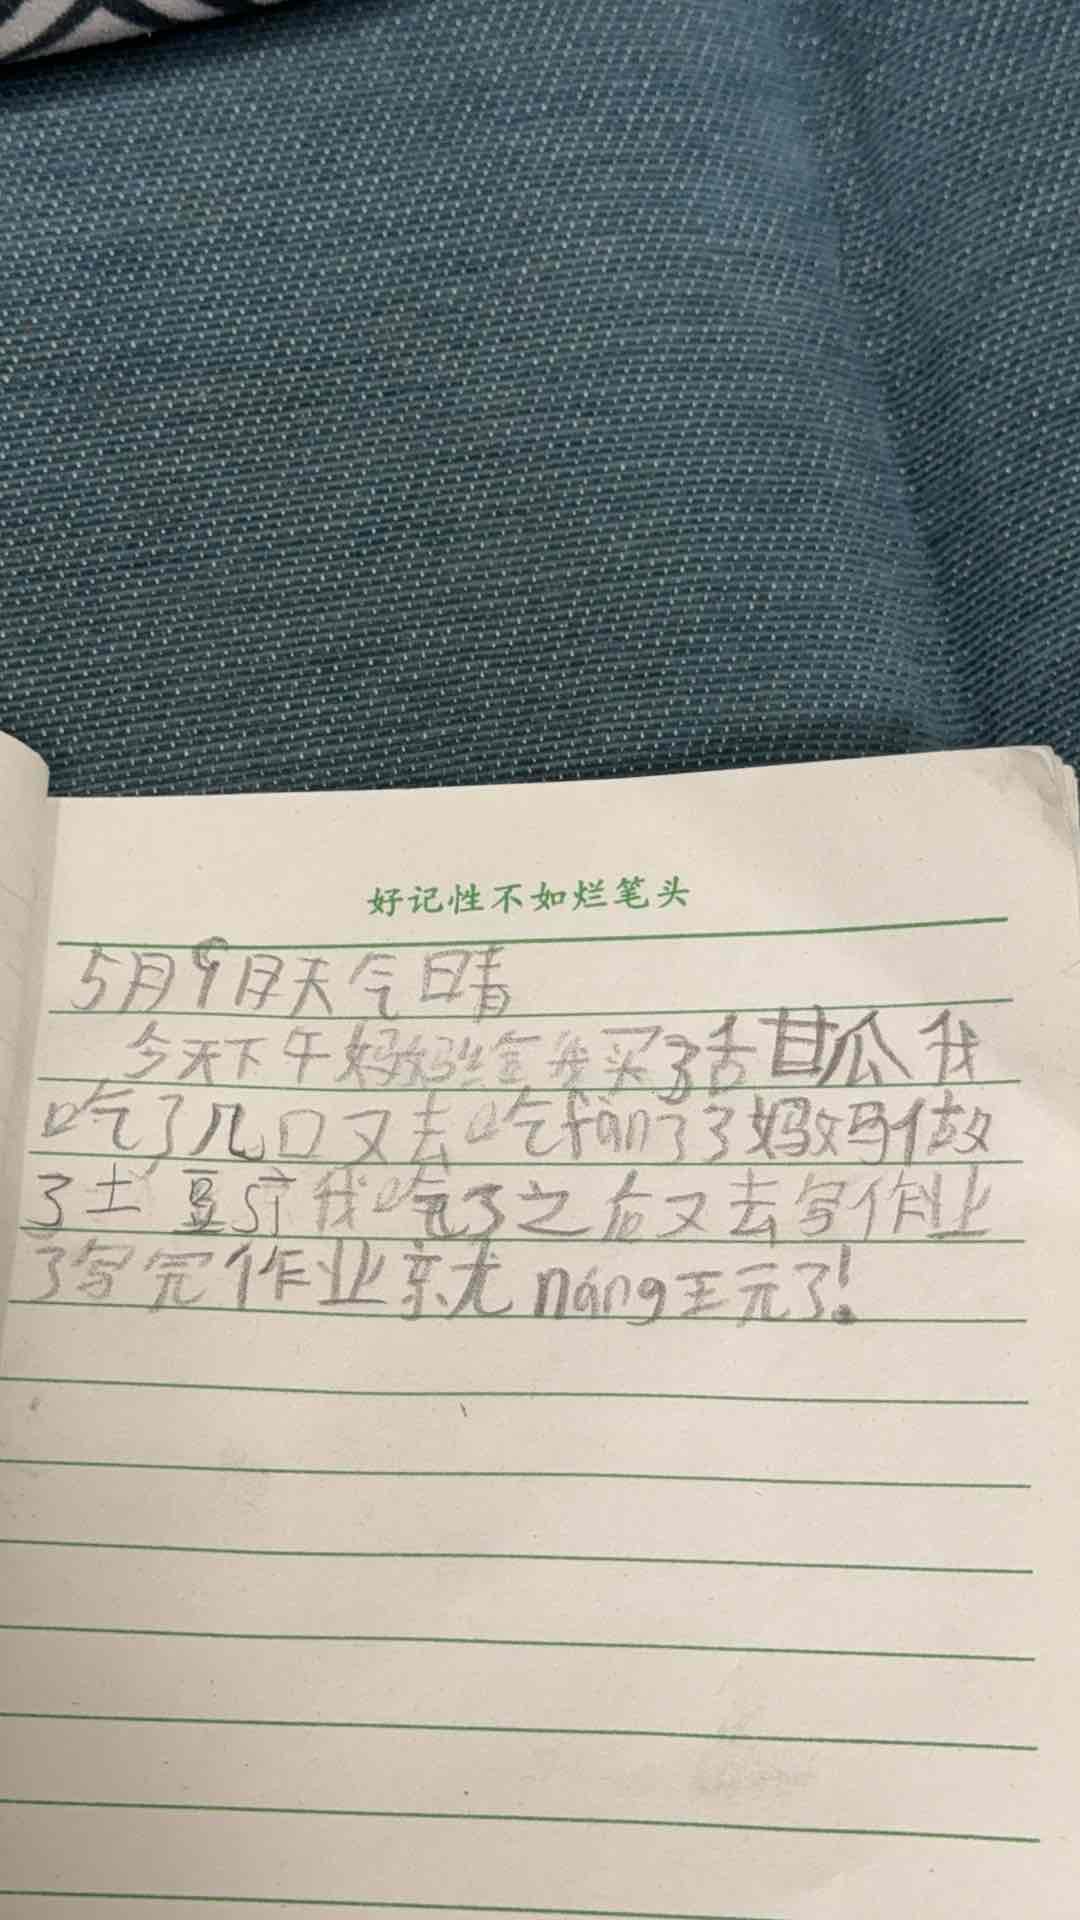 好记性不如烂笔头
5月9日天气日晴
今天下午妈妈给我买了舌甘瓜我
吃了几口又去吃fàn了了妈妈做
了土豆我吃了之后又去写作业
了写完作业就náng王元了!